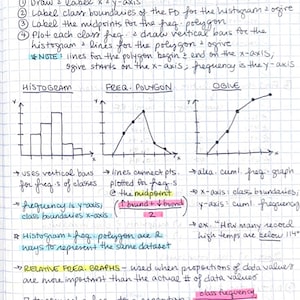 ① Draw & label x & y-axis
② Label class boundaries of the FD for the histogram & ogive
③ Label the midpoints for the freq. polygon
④ Plot each class freq. & draw vertical bars for the
histogram & lines for the polygon & ogive
*NOTE: lines for the polygon begin & end on the x-axis,
ogive starts on the x-axis; frequency is the y-axis
HISTOGRAM
FREQ. POLYGON
OGIVE
y
x
→ uses vertical bars
for freq.s of classes
→ frequency is y-axis;
class boundaries x-axis
→ Histogram & freq. polygon are 2
ways to represent the same dataset
→ lines connect pts.
plotted for freq.s
@ the midpoint
(↑ bound + ↓ bound)
2
→ aka. cuml. freq. graph
→ x-axis: class boundaries;
y-axis: cuml. frequency
→ ex. "How many record
high temps are below 114°
→ RELATIVE FREQ. GRAPHS - used when proportions of data values
are more important than the actual # of data values
class frequency